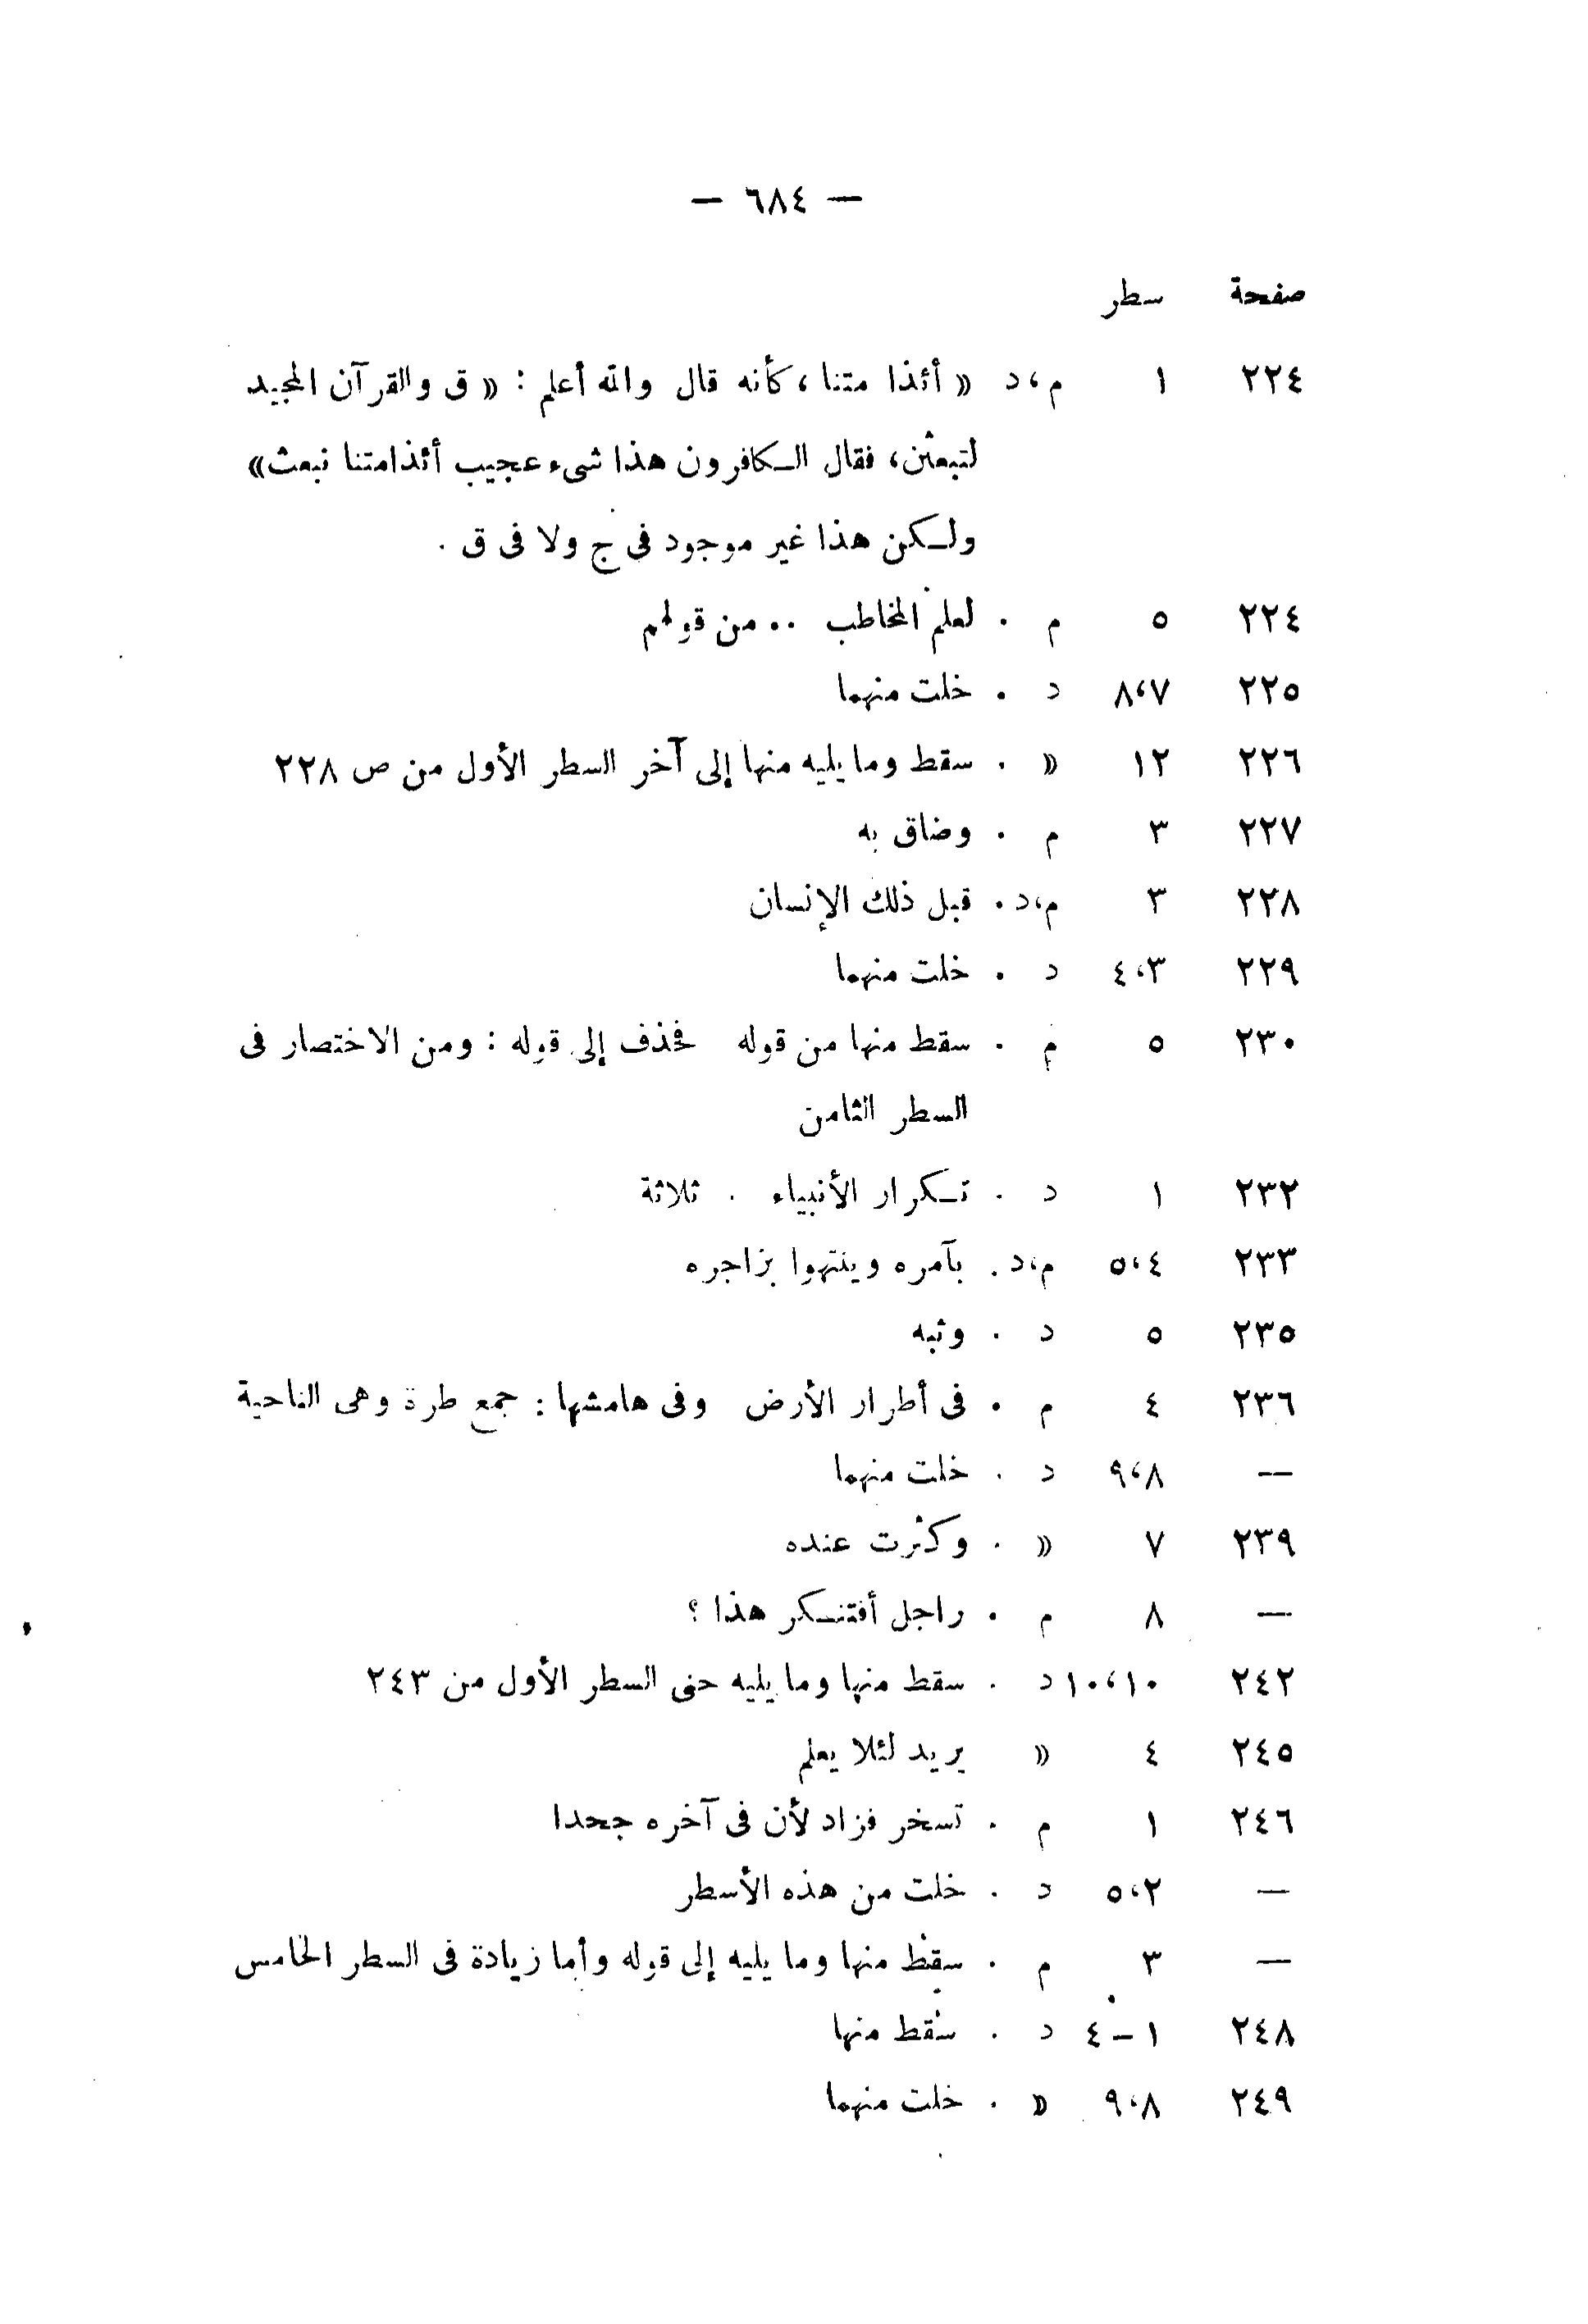 — ٦٨٤ —
صفحة سطر
٢٢٤ ١ م،د « أئذا متنا ، كأنه قال والله أعلم : « ق والقرآن المجيد
لتبعثن ، فقال الـكافرون هذا شىء عجيب أئذامتنا نبعث »
ولـكن هذا غير موجود فى ج ولا فى ق .
٢٢٤ ٥ م . لعلم المخاطب .. من قولهم
٢٢٥ ٨،٧ د . خلت منهما
٢٢٦ ١٢ « . سقط وما يليه منها إلى آخر السطر الأول من ص ٢٢٨
٢٢٧ ٣ م . وضاق به
٢٢٨ ٣ م،د . قبل ذلك الإنسان
٢٢٩ ٤،٣ د . خلت منهما
٢٣٠ ٥ م . سقط منها من قوله فحذف إلى قوله : ومن الاختصار فى
السطر الثامن
٢٣٢ ١ د . تـكرار الأنبياء . ثلاثة
٢٣٣ ٥،٤ م،د . بآمره وينتهوا بزاجره
٢٣٥ ٥ د . وثبه
٢٣٦ ٤ م . فى أطرار الأرض وفى هامشها : جمع طرة وهى الناحية
— ٩،٨ د . خلت منهما
٢٣٩ ٧ « . وكثرت عنده
— ٨ م . راجل أفتنـكر هذا ؟
٢٤٢ ١٠،١٠ د . سقط منها وما يليه حتى السطر الأول من ٢٤٣
٢٤٥ ٤ « يريد لئلا يعلم
٢٤٦ ١ م . تسخر فزاد لأن فى آخره جحدا
— ٥،٢ د . خلت من هذه الأسطر
— ٣ م . سقط منها وما يليه إلى قوله وأما زيادة فى السطر الخامس
٢٤٨ ١ – ٤ د . سقط منها
٢٤٩ ٩،٨ « . خلت منهما